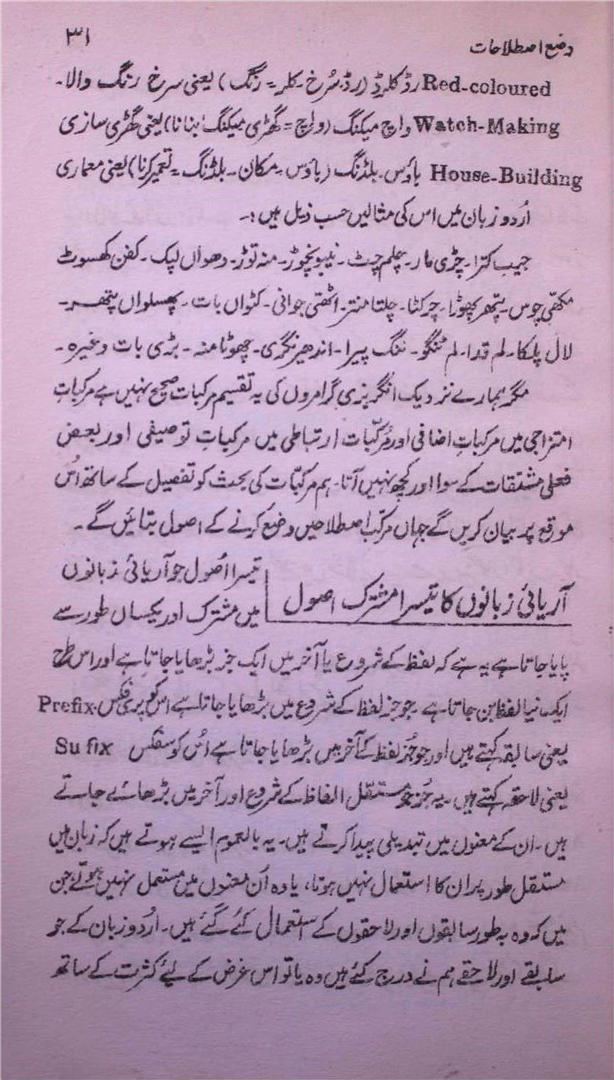 وضع اصطلاحات ۳۱
Red-coloured رڈ کلرڈ (رڈ۔ سُرخ ۔ کلر = رنگ) یعنی سرخ رنگ والا۔
Watch-Making واچ میکنگ (واچ = گھڑی میکنگ۔ بنانا) یعنی گھڑی سازی
House-Building ہاؤس۔ بلڈنگ (ہاؤس۔ مکان ۔ بلڈنگ = تعمیر کرنا) یعنی معماری
اُردو زبان میں اس کی مثالیں حسب ذیل ہیں :۔
جیب کترا۔ چڑی مار۔ چلم چٹ ۔ نیبو نچوڑ۔ منہ توڑ۔ دھواں لپک ۔ کفن کھسوٹ
مکھی چوس۔ پتھر پھوڑا۔ چرکٹا۔ چلتا منتر۔ اٹھتی جوانی۔ کٹواں بات ۔ پھسلواں پتھر۔
لال پلکا۔ لم قدا۔ لم ٹنگو۔ ننگ پیرا۔ اندھیر نگری۔ چھوٹا منہ ۔ بڑی بات وغیرہ ۔
مگر ہمارے نزدیک انگریزی گرامروں کی یہ تقسیم مرکبات صحیح نہیں ہے مرکباتِ
امتزاجی میں مرکباتِ اضافی اور مُرکّبات ارتباطی میں مرکباتِ توصیفی اور بعض
فعلی مشتقات کے سوا اور کچھ نہیں آتا۔ ہم مرکبّات کی بحث کو تفصیل کے ساتھ اُس
موقع پر بیان کریں گے جہاں مرکب اصطلاحیں وضع کرنے کے اصول بتائیں گے ۔
آریائی زبانوں کا تیسرا مشترک اصول
تیسرا اُصول جو آریائی زبانوں
میں مشترک اور یکساں طور سے
پایا جاتا ہے یہ ہے کہ لفظ کے شروع یا آخر میں ایک جز بڑھایا جاتا ہے اور اس طرح
ایک نیا لفظ بن جاتا ہے۔ جو جز لفظ کے شروع میں بڑھایا جاتا ہے اس کو پری فکس Prefix
یعنی سابقہ کہتے ہیں اور جو جُز لفظ کے آخر میں بڑھایا جاتا ہے اُس کو سفکس Su fix
یعنی لاحقہ کہتے ہیں۔ یہ جُز جو مستقل الفاظ کے شروع اور آخر میں بڑھائے جاتے
ہیں ۔ ان کے معنوں میں تبدیلی پیدا کرتے ہیں۔ یہ بالعموم ایسے ہوتے ہیں کہ زبان میں
مستقل طور پر ان کا استعمال نہیں ہوتا، یا وہ اُن معنوں میں مستعمل نہیں ہوتے جن
میں کہ وہ بہ طور سابقوں اور لاحقوں کے استعمال کئے گئے ہیں۔ اردو زبان کے جو
سابقے اور لاحقے ہم نے درج کئے ہیں وہ یا تو اس غرض کے لئے کثرت کے ساتھ